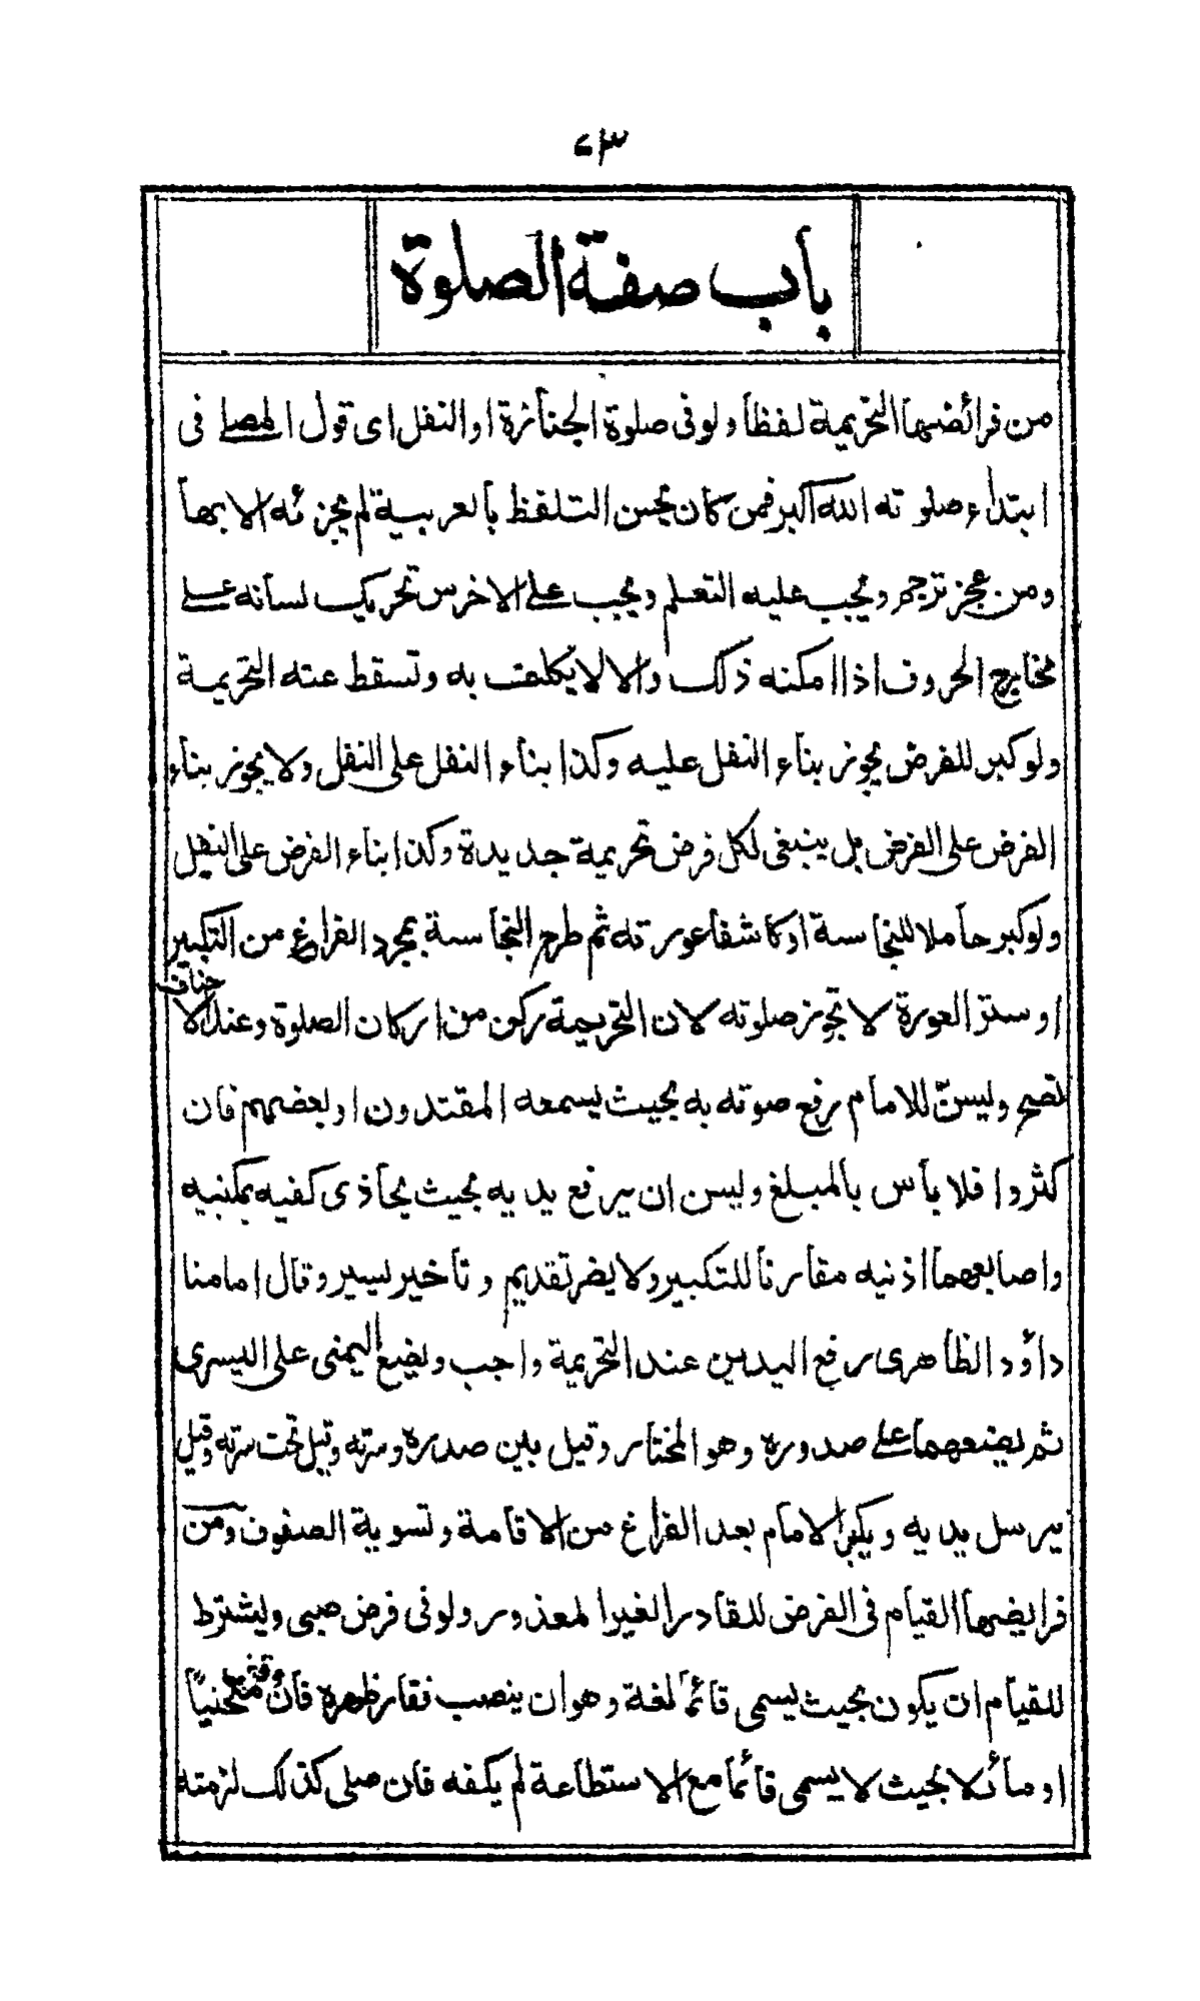 ٧٣
باب صفة الصلوة
من فرائضها التحريمة لفظا ولو فى صلوة الجنازة او النفل اى قول المصلے فى
ابتداء صلوته الله اكبر فمن كان يحسن التلفظ بالعربية لم يجزئه الا بها
ومن عجز ترجم ويجب عليه التعلم ويجب علے الاخرس تحريك لسانه علے
مخارج الحروف اذا امكنه ذلك والا لا يكلف به وتسقط عنه التحريمة
ولو كبر للفرض يجوز بناء النفل عليه وكذا بناء النفل على النفل ولا يجوز بناء
الفرض على الفرض بل ينبغى لكل فرض تحريمة جديدة وكذا بناء الفرض على النفل
ولو كبر حاملا للنجاسة او كاشفا عورته ثم طرح النجاسة بمجرد الفراغ من التكبير
او ستر العورة لا تجوز صلوته لان التحريمة ركن من اركان الصلوة وعند الاحناف
تصح وليسنّ للامام رفع صوته به بحيث يسمعه المقتدون او بعضهم فان
كثروا فلا بأس بالمبلغ وليسن ان يرفع يديه بحيث يحاذى كفيه بمكبيه
واصابعهما اذنيه مقارنا للتكبير ولا يضر تقديم وتأخير يسير وقال امامنا
داؤد الظاهرى رفع اليدين عند التحريمة واجب ويضع اليمنى على اليسرى
ثم يضعهما علے صدوره وهو المختار وقيل بين صدره وسرته وقيل تحت سرته وقيل
يرسل يديه ويكبر الامام بعد الفراغ من الاقامة وتسوية الصفوف ومن
فرايضها القيام فى الفرض للقادر الغير المعذور ولو فى فرض صبى ويشترط
للقيام ان يكون بحيث يسمى قائما لغة وهو ان ينصب فقار ظهره فان وقف منحنياً
او مائلا بحيث لا يسمى قائما مع الاستطاعة لم يكفه فان صلى كذلك لزمته